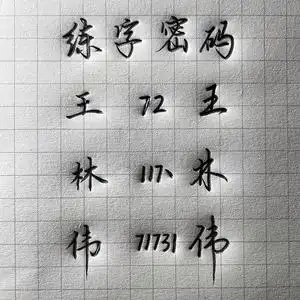 练字密码
王 72 王
林 117、 林
伟 71731 伟